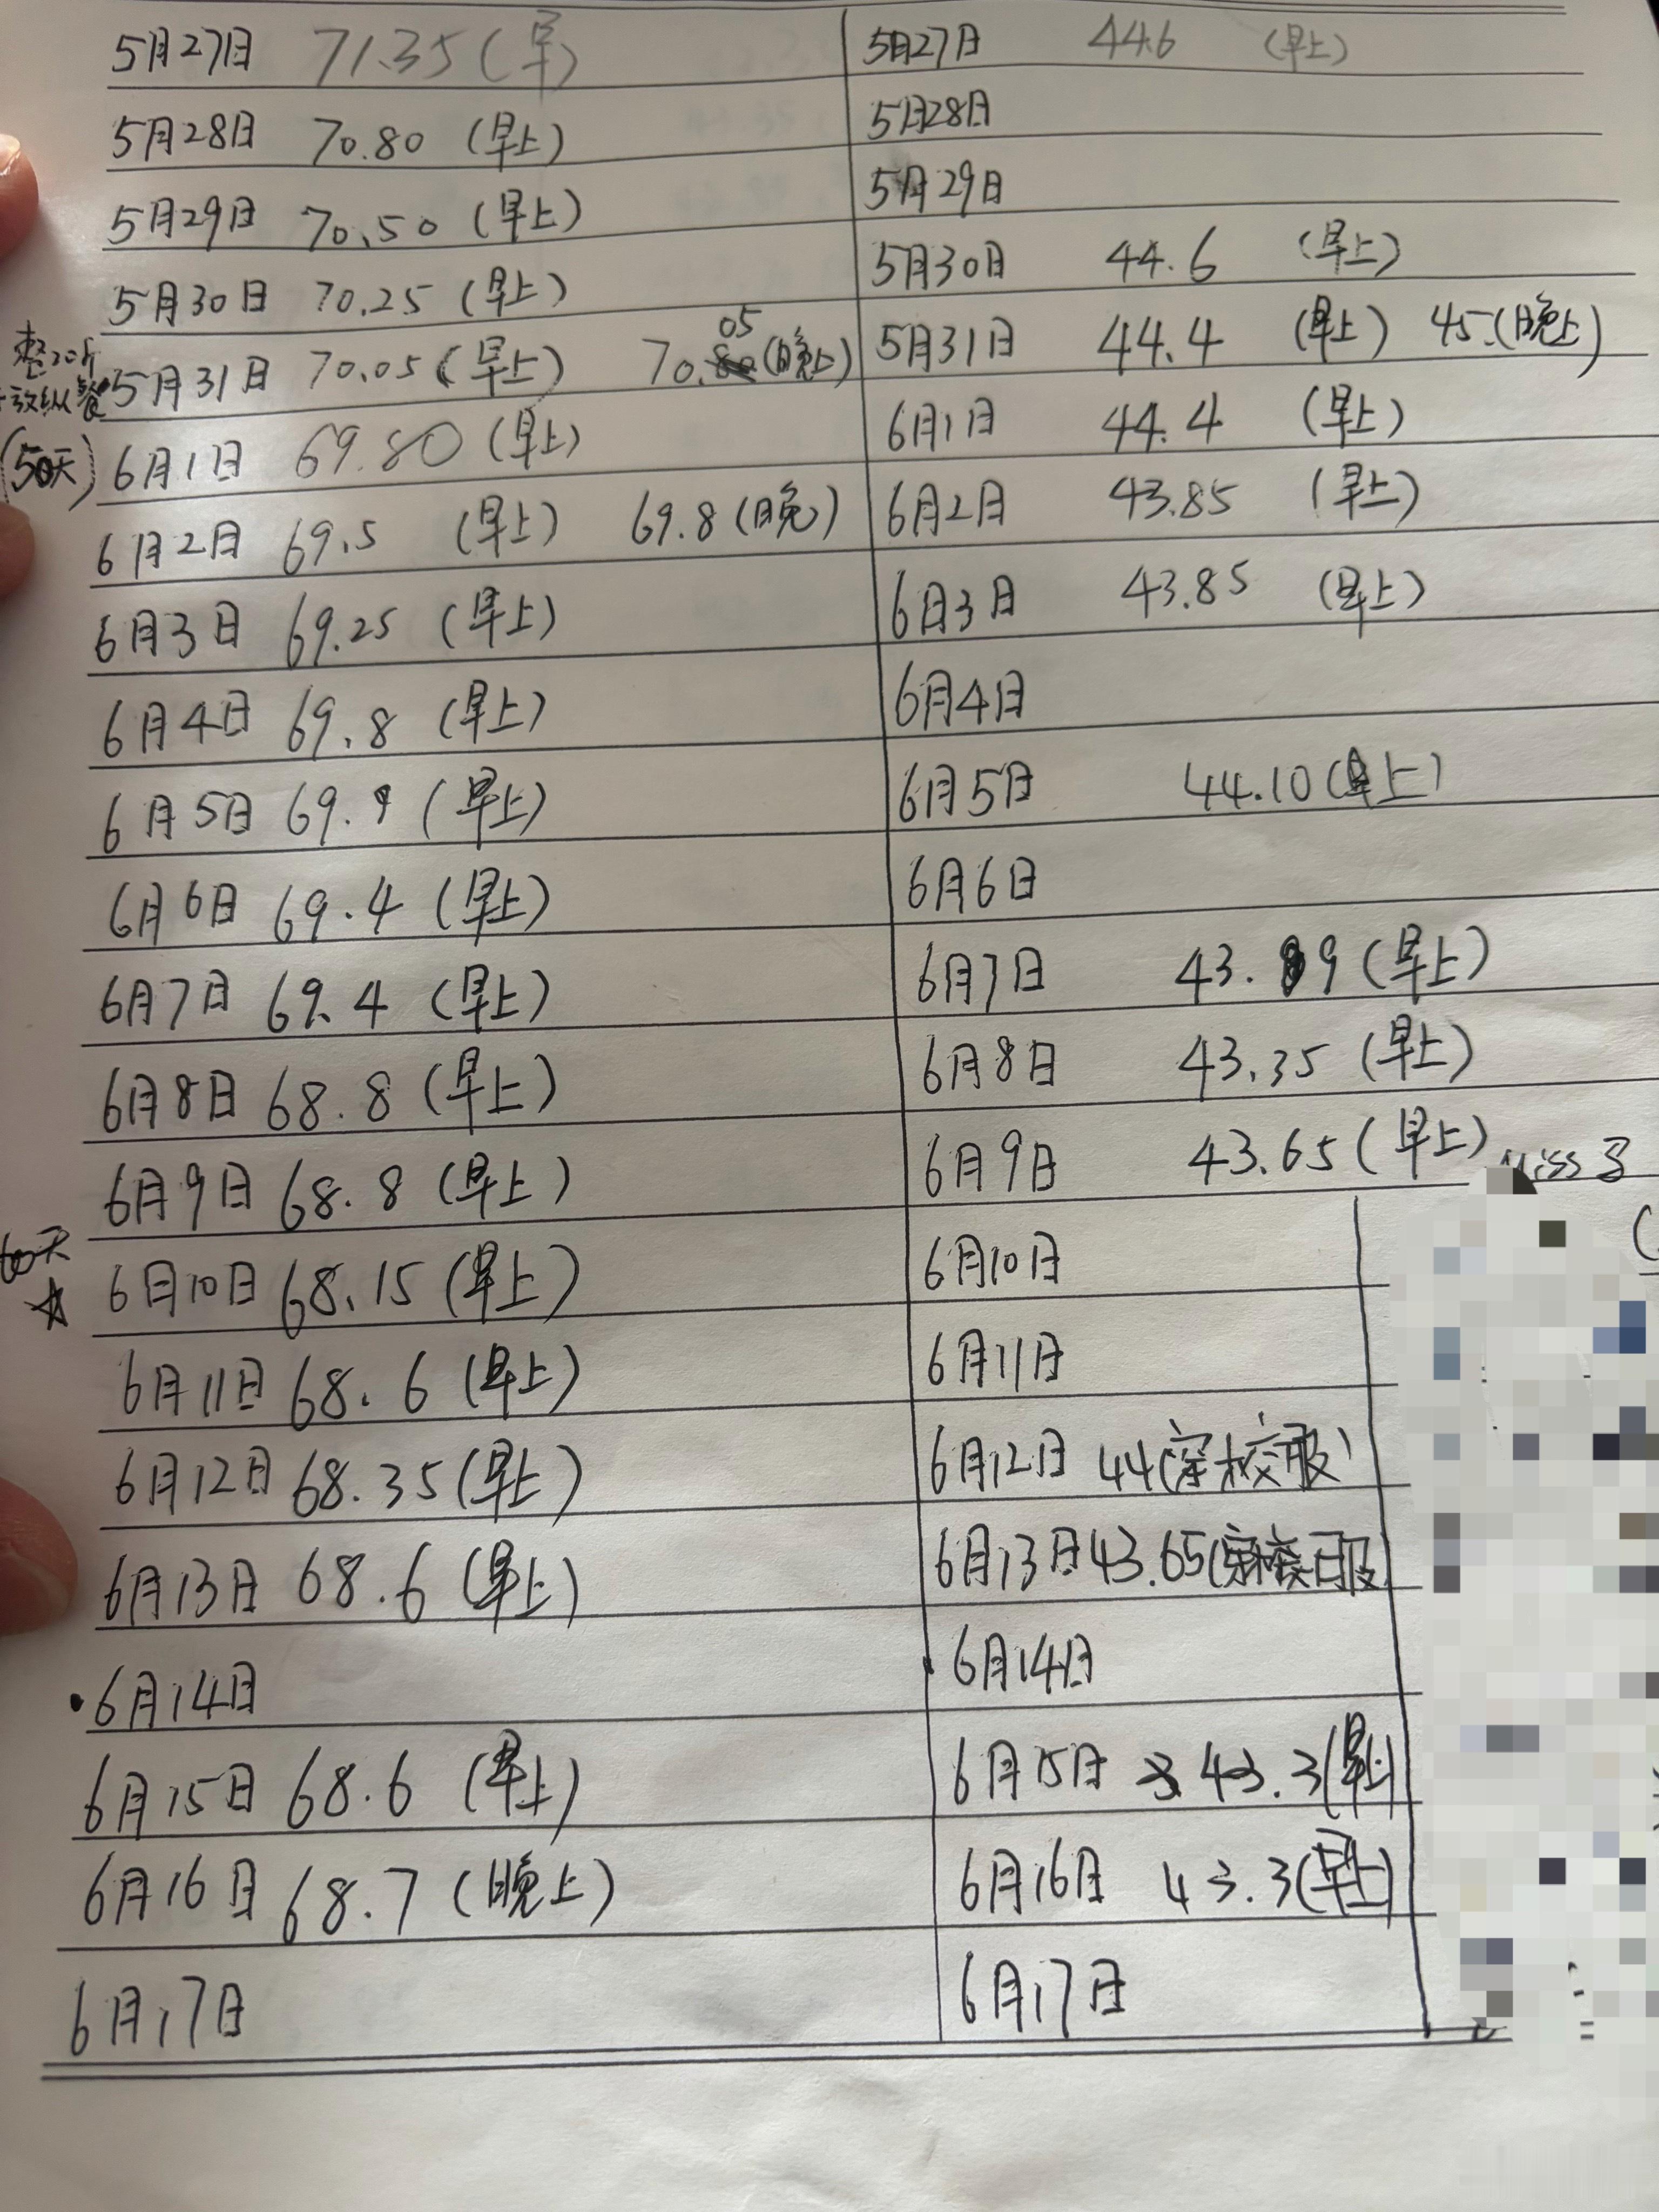 5月27日 71.35(早) 5月27日 44.6 (早上)
5月28日 70.80 (早上) 5月28日
5月29日 70.50 (早上) 5月29日
5月30日 70.25 (早上) 5月30日 44.6 (早上)
整20斤
放纵餐
5月31日 70.05(早上) 70.05(晚上) 5月31日 44.4 (早上) 45.(晚上)
(50天) 6月1日 69.80 (早上) 6月1日 44.4 (早上)
6月2日 69.5 (早上) 69.8(晚) 6月2日 43.85 (早上)
6月3日 69.25 (早上) 6月3日 43.85 (早上)
6月4日 69.8 (早上) 6月4日
6月5日 69.9 (早上) 6月5日 44.10(早上)
6月6日 69.4 (早上) 6月6日
6月7日 69.4 (早上) 6月7日 43.9(早上)
6月8日 68.8 (早上) 6月8日 43.35 (早上)
6月9日 68.8 (早上) 6月9日 43.65(早上)
60天
6月10日 68.15 (早上) 6月10日
6月11日 68.6 (早上) 6月11日
6月12日 68.35(早上) 6月12日 44(穿校服)
6月13日 68.6 (早上) 6月13日 43.65(穿校服)
·6月14日 6月14日
6月15日 68.6 (早上) 6月15日 43.3(早上)
6月16日 68.7 (晚上) 6月16日 43.3(早上)
6月17日 6月17日